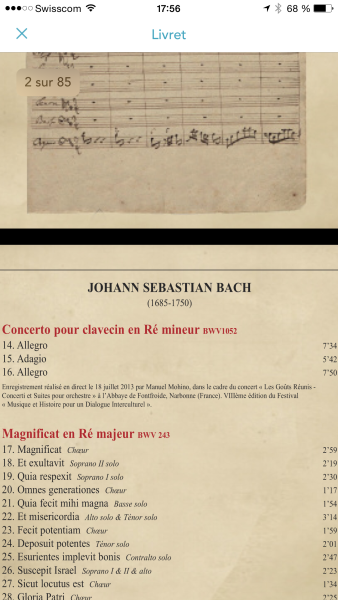 Swisscom 17:56 68 %
Livret
2 sur 85
JOHANN SEBASTIAN BACH
(1685-1750)
Concerto pour clavecin en Ré mineur BWV1052
14. Allegro 7’34
15. Adagio 5’42
16. Allegro 7’50
Enregistrement réalisé en direct le 18 juillet 2013 par Manuel Mohino, dans le cadre du concert « Les Goûts Réunis -
Concerti et Suites pour orchestre » à l’Abbaye de Fontfroide, Narbonne (France). VIIIème édition du Festival
« Musique et Histoire pour un Dialogue Interculturel ».
Magnificat en Ré majeur BWV 243
17. Magnificat Chœur 2’59
18. Et exultavit Soprano II solo 2’19
19. Quia respexit Soprano I solo 2’30
20. Omnes generationes Chœur 1’17
21. Quia fecit mihi magna Basse solo 1’54
22. Et misericordia Alto solo & Ténor solo 3’14
23. Fecit potentiam Chœur 1’59
24. Deposuit potentes Ténor solo 2’01
25. Esurientes implevit bonis Contralto solo 2’47
26. Suscepit Israel Soprano I & II & alto 2’23
27. Sicut locutus est Chœur 1’34
28. Gloria Patri Chœur 2’25